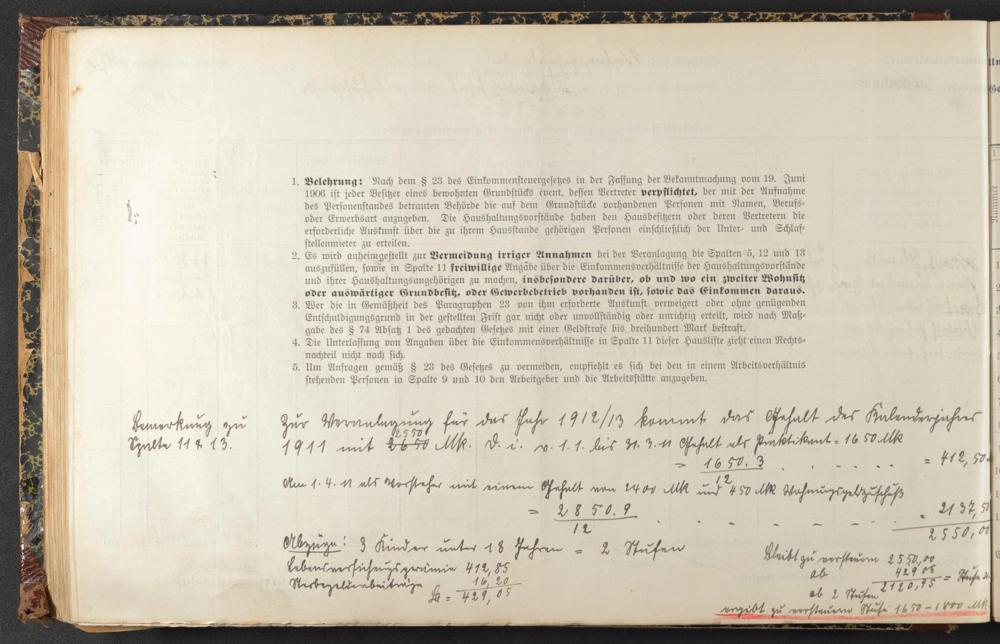 1. Belehrung: Nach dem § 23 des Einkommensteuergesetzes in der Fassung der Bekanntmachung vom 19. Juni
1906 ist jeder Besitzer eines bewohnten Grundstücks event. dessen Vertreter verpflichtet, der mit der Aufnahme
des Personenstandes betrauten Behörde die auf dem Grundstücke vorhandenen Personen mit Namen, Berufs-
oder Erwerbsart anzugeben. Die Haushaltungsvorstände haben den Hausbesitzern oder deren Vertretern die
erforderliche Auskunft über die zu ihrem Hausstande gehörigen Personen einschließlich der Unter- und Schlaf-
stellenmieter zu erteilen.
2. Es wird anheimgestellt zur Vermeidung irriger Annahmen bei der Veranlagung die Spalten 5, 12 und 13
auszufüllen, sowie in Spalte 11 freiwillige Angabe über die Einkommensverhältnisse der Haushaltungsvorstände
und ihrer Haushaltungsangehörigen zu machen, insbesondere darüber, ob und wo ein zweiter Wohnsitz
oder auswärtiger Grundbesitz, oder Gewerbebetrieb vorhanden ist, sowie das Einkommen daraus.
3. Wer die in Gemäßheit des Paragraphen 23 von ihm erforderte Auskunft verweigert oder ohne genügenden
Entschuldigungsgrund in der gestellten Frist gar nicht oder unvollständig oder unrichtig erteilt, wird nach Maß-
gabe des § 74 Absatz 1 des gedachten Gesetzes mit einer Geldstrafe bis dreihundert Mark bestraft.
4. Die Unterlassung von Angaben über die Einkommensverhältnisse in Spalte 11 dieser Hausliste zieht einen Rechts-
nachteil nicht nach sich.
5. Um Anfragen gemäß § 23 des Gesetzes zu vermeiden, empfiehlt es sich bei den in einem Arbeitsverhältnis
stehenden Personen in Spalte 9 und 10 den Arbeitgeber und die Arbeitsstätte anzugeben.
Bemerkung zu
Spalte 11 & 13.
Zur Veranlagung für das Jahr 1912/13 kommt das Gehalt des Kalenderjahres
2550
1911 mit 2650 Mk. D. i. v. 1.1. bis 31.3.11 Gehalt als Praktikant = 1650 Mk
= 1650.3 = 412,50
12
Am 1.4.11 als Vorsteher mit einem Gehalt von 2400 Mk und 450 Mk Wohnungsgeldzuschuß
= 2850.9 = 2137,50
12
2550,00
Abzüge: 3 Kinder unter 18 Jahren = 2 Stufen
Lebensversicherungsprämie 412,85
Sterbegeldbeiträge 16,20
Sa = 429,05
Bleibt zu versteuern 2550,00
ab 429,05
2120,95 = Stufe
ab 2 Stufen
ergibt zu versteuern Stufe 1650 - 1800 Mk